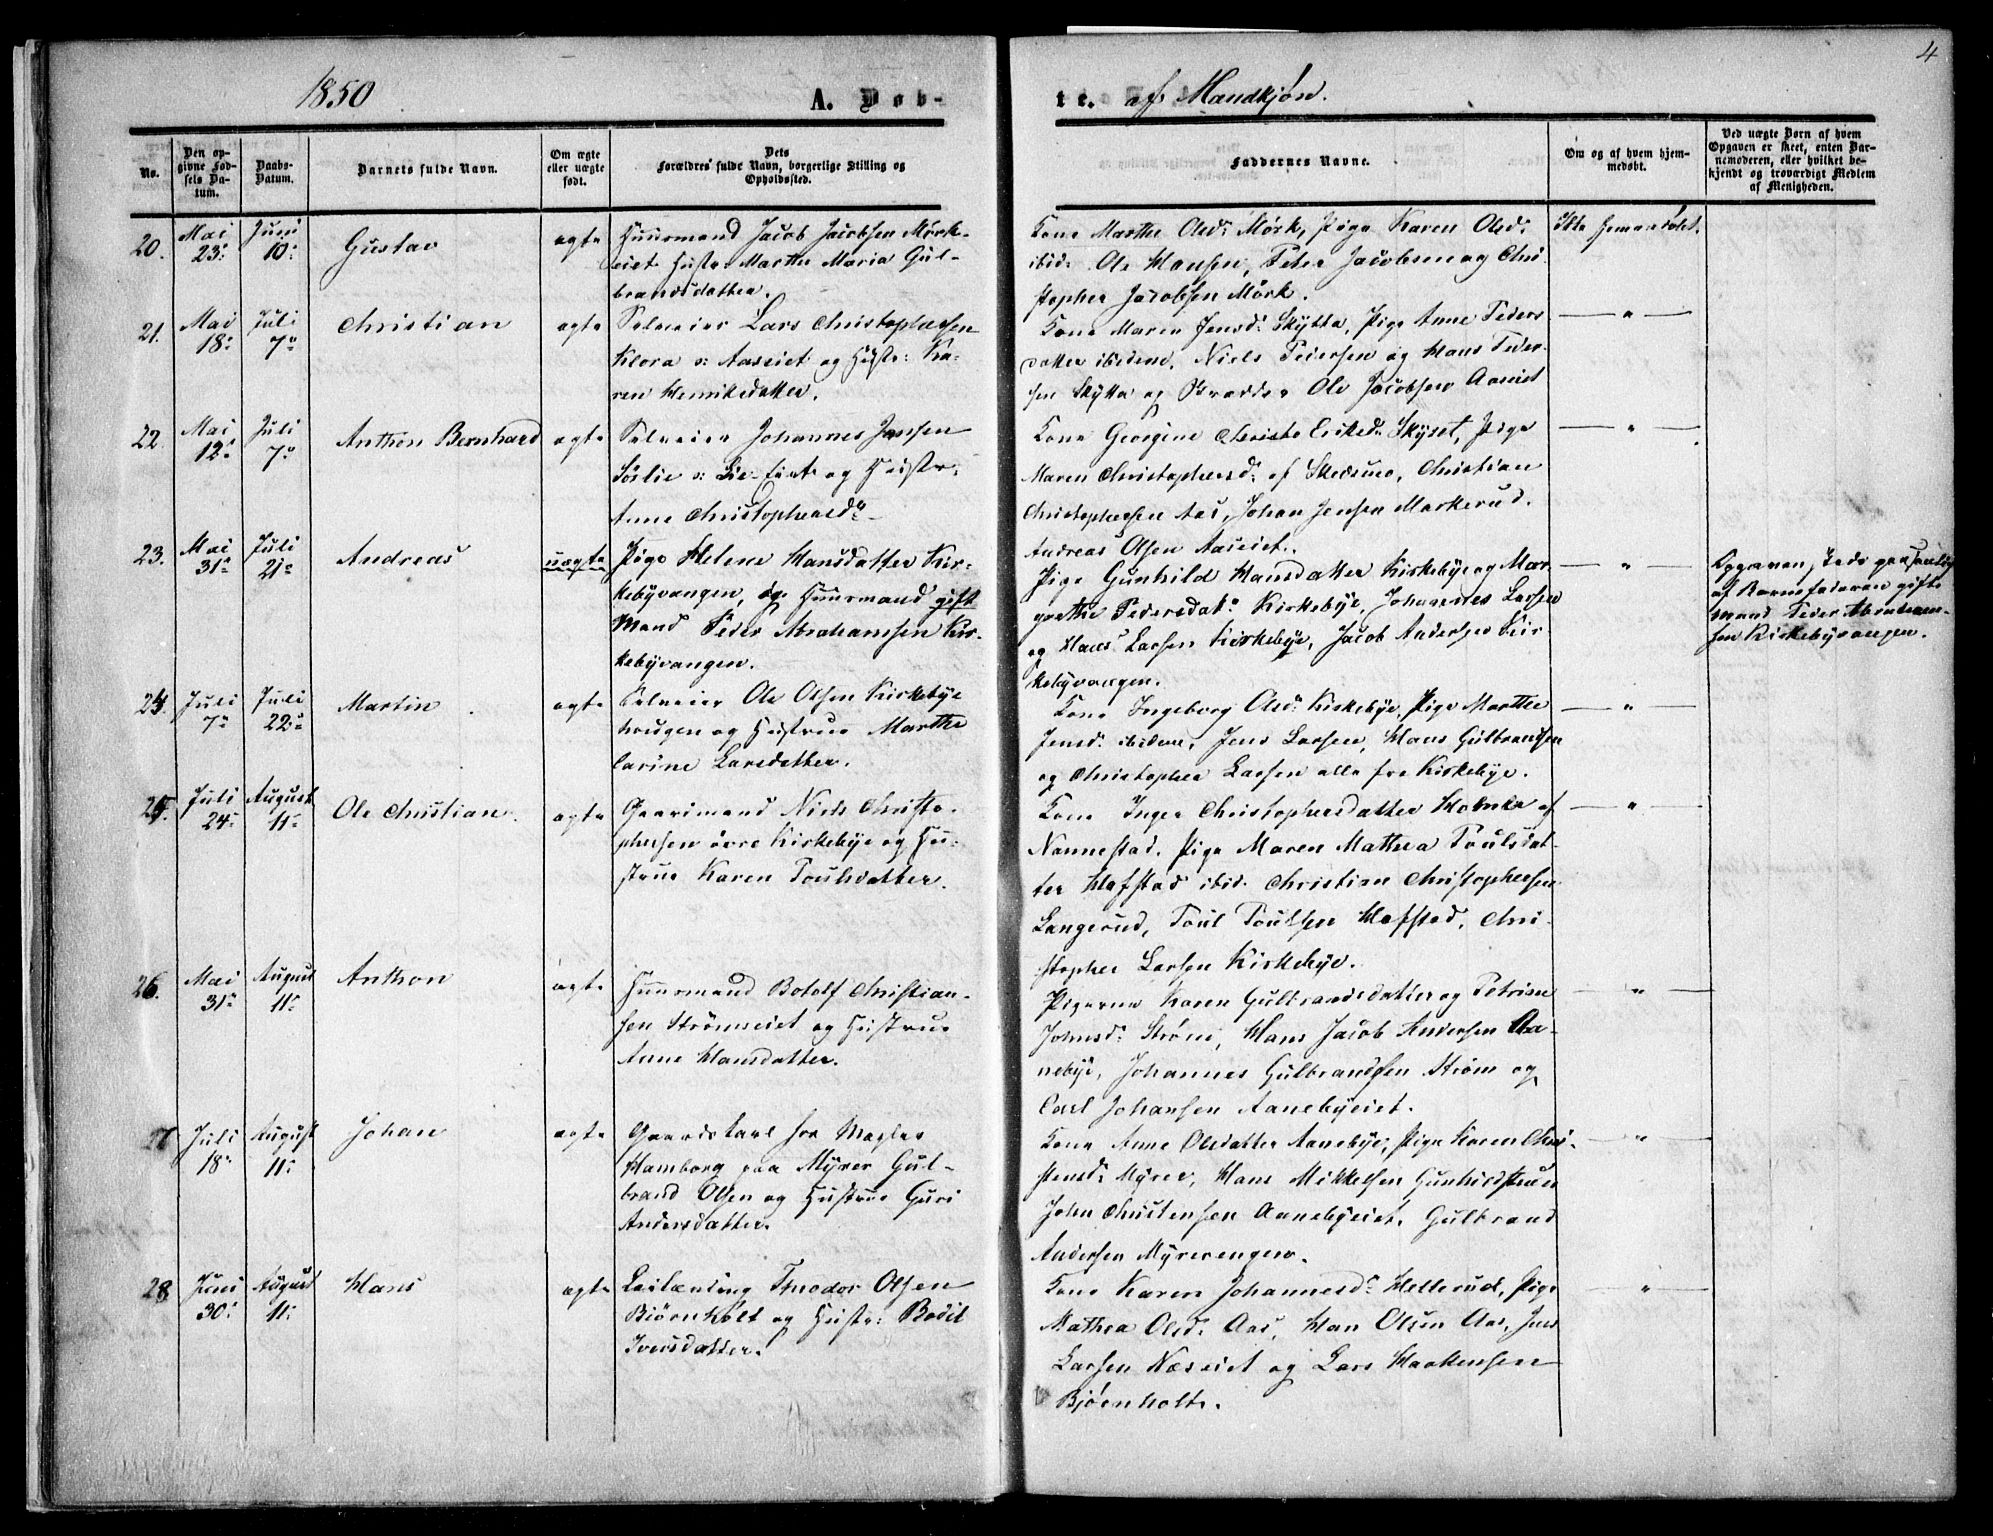 4
1850
A. Døb-
te. af Mandkjøn.
No.
Den op-
givne Fød-
sels Da-
tum.
Daabs-
Datum.
Barnets fulde Navn.
Om ægte
eller uægte
født.
Dets
Forældres fulde Navn, borgerlige Stilling og
Opholdssted.
Faddernes Navne.
Om og af hvem hjem-
medøbt.
Ved uægte Børn af hvem
Opgaven er skeet, enten Bar-
nemoderen, eller hvilket be-
kjendt og troværdigt Medlem
af Menigheden.
20.
Mai
23
Juni
10
Gustav
ægte
Huusmand Jacob Jacobsen Mørk-
eiet Hustr. Marthe Maria Gul-
brandsdatter.
Kone Marthe Olsd. Mørk, Pige Karen Olsd.
ibid. Ole Hansen, Peter Jacobsen og Chri-
stopher Jacobsen Mørk.
ikke hjemmedøbt.
21.
Mai
18
Juli
7
Christian
ægte
Selveier Lars Christophersen
Klora v. Aaseiet og Hustr: Ka-
ren Henriksdatter.
Kone Maren Jensd. Skytta, Pige Anne Peders
datter ibidem, Niels Pedersen og Hans Peder-
sen Skytta og Ole Jacobsen Aaseiet
22
Mai
12
Juli
7
Anthon Bernhard
ægte
Selveier Johannes Jensen
Sørlie og Hustr.
Anne Christophersd.
Kone Georgine Christe Eriksd. Skyset, Pige
Maren Christophersd. af Skedsmo, Christian
Christophersen Aas, Johan Jensen Markerud.
Andreas Olsen Aaseiet.
23.
Mai
31
Juli
21
Andreas
uægte
Pige Helene Hansdatter Kir-
kebyvangen, og Huusmand gift
Mand Peder Abrahamsen Kir-
kebyvangen.
Pige Gunhild Hansdatter Kirkebye og Mar-
grethe Pedersdat. Kirkebye, Johannes Larsen
og Hans Larsen Kirkebye, Jacob Andersen Kir-
kebyvangen.
Opgaven
af Barnefaderen gifte
Mand Peder Abraham-
sen Kirkebyvangen.
24.
Juli
7
Juli
22
Martin
ægte
Selveier Ole Olsen Kirkebye
haugen og Hustrue Marthe
Carine Larsdatter.
Kone Ingeborg Olsd. Kirkebye, Pige Marthe
Jensd. ibidem, Jens Larsen, Hans Gulbrandsen
og Christopher Larsen alle fra Kirkebye.
25.
Juli
24
August
11
Ole Christian.
ægte
Gaardmand Niels Christo-
phersen øvre Kirkebye og Hu-
strue Karen Poulsdatter.
Kone Inger Christophersdatter Holmka af
Nannestad. Pige Maren Mathea Poulsdat-
ter Hafstad ibid. Christian Christophersen
Langerud, Poul Poulsen Hafstad, Chri-
stopher Larsen Kirkebye.
26.
Mai
31
August
11
Anthon
ægte
Huusmand Botolf Christian-
sen Strømseiet og Hustrue
Anne Hansdatter.
Pigerne Karen Gulbrandsdatter og Petrine
Johnsd. Strøm, Hans Jacob Andersen Aa-
nebye, Johannes Gulbrandsen Strøm og
Carl Johansen Aanebyeiet.
27
Juli
18
August
11
Johan
ægte
Gaardskarl hos Mægler
Hamborg paa Myrer Gul-
brand Olsen og Hustrue Guri
Andersdatter.
Kone Anne Olsdatter Aanebye, Pige Karen Chri-
stensd. Myrer, Hans Mikkelsen Gunhildstruer
John Christensen Aanebyeiet, Gulbrand
Andersen Myrerengen.
28
Juni
30
August
11
Hans
ægte
Leilænding Theodor Olsen
Biørnholt og Hustr: Bodil
Iversdatter.
Kone Karen Johannesd. Hellerud, Pige
Mathea Olsd. Aas, Han Olsen Aas, Jens
Larsen Næseiet og Lars Haakensen
Bjørnholt.